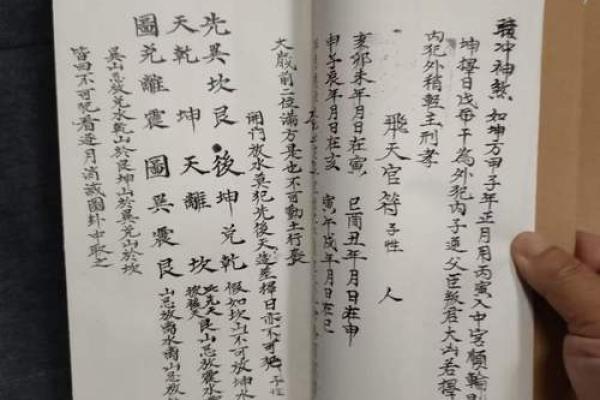 冲神煞 如坤方甲子年正月用丙寅入中宮順輪
坤擇日戊 干為外犯內子逆父臣叛君大凶若擇
內犯外稍輕主刑孝
飛天官符 子性 人
亥卯未年月日在寅 巳酉丑年月日在申
申子辰年月日在亥 寅午戌年月日在巳
大歲前二位滿方是也不可動土行喪
開門放水莫犯先後天造差擇日亦不可犯 子性
先巽坎艮後坤兌乾 假如坎山不可放坤水
天乾坤天離坎 先天艮山忌放震水
圖兌離震圖巽震艮 山忌放離水離山忌放
巽山忌放兌水乾山於艮坤山於巽兌山於坎
皆四不可犯看逐月消滅圖卦中取之